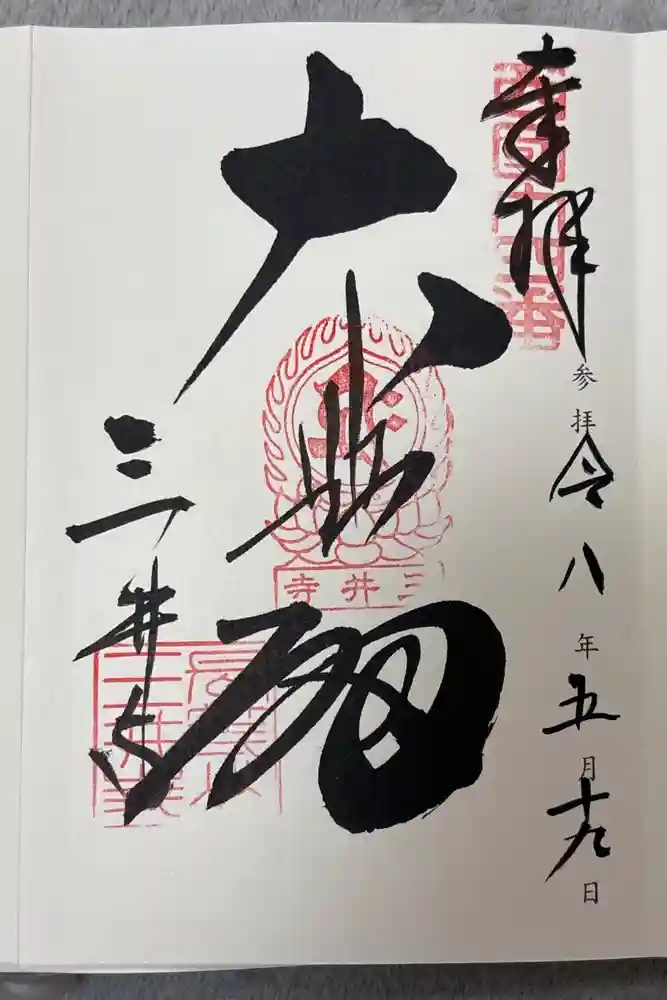 奉拝
西國十四番
参拝令八年五月十九日
大悲閣
三井寺
三井寺